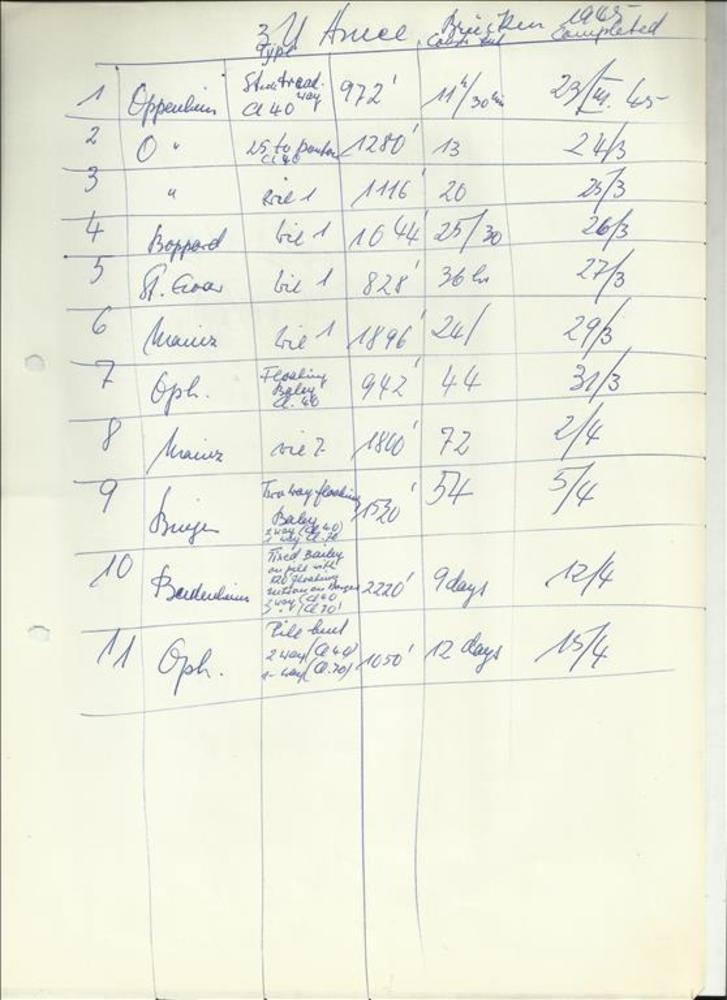 3 U Armee Brücken 1945
Type Const. Completed
1 Oppenheim Steel tread way Cl 40 972' 11h/30 min 23/III. 45
2 O " 25 to ponton Cl 40 1280' 13 24/3
3 " wie 1 1116' 20 25/3
4 Boppard wie 1 1044' 25/30 26/3
5 St. Goar wie 1 828' 36 hr 27/3
6 Mainz wie 1 1896' 24/ 29/3
7 Oph. Floating Baley Cl. 40 942' 44 31/3
8 Mainz wie 7 1860' 72 2/4
9 Bingen Two way floating Baley 2 way (Cl 40) 1 way Cl. 70 1520' 54 5/4
10 Fixed Bailey on pile with floating on Barges 2 way (Cl 40 (Cl 70) 2220' 9 days 12/4
11 Oph. Pile 2 way (Cl 40) 1- way (Cl. 70) 1050' 12 days 15/4